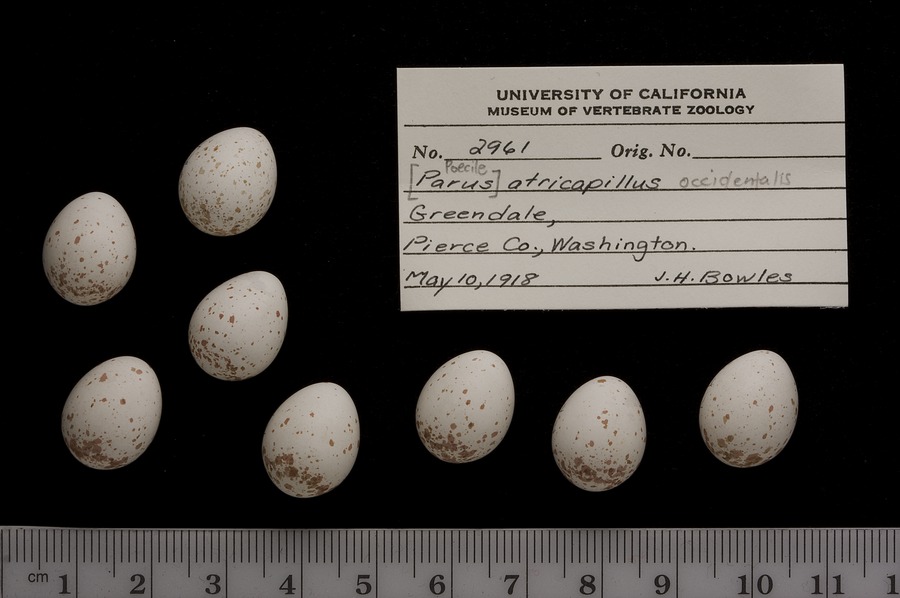 UNIVERSITY OF CALIFORNIA
MUSEUM OF VERTEBRATE ZOOLOGY
No. 2961 Orig. No.
Poecile
[Parus] atricapillus occidentalis
Greendale,
Pierce Co., Washington.
May 10, 1918 J.H. Bowles
cm 1 2 3 4 5 6 7 8 9 10 11 1